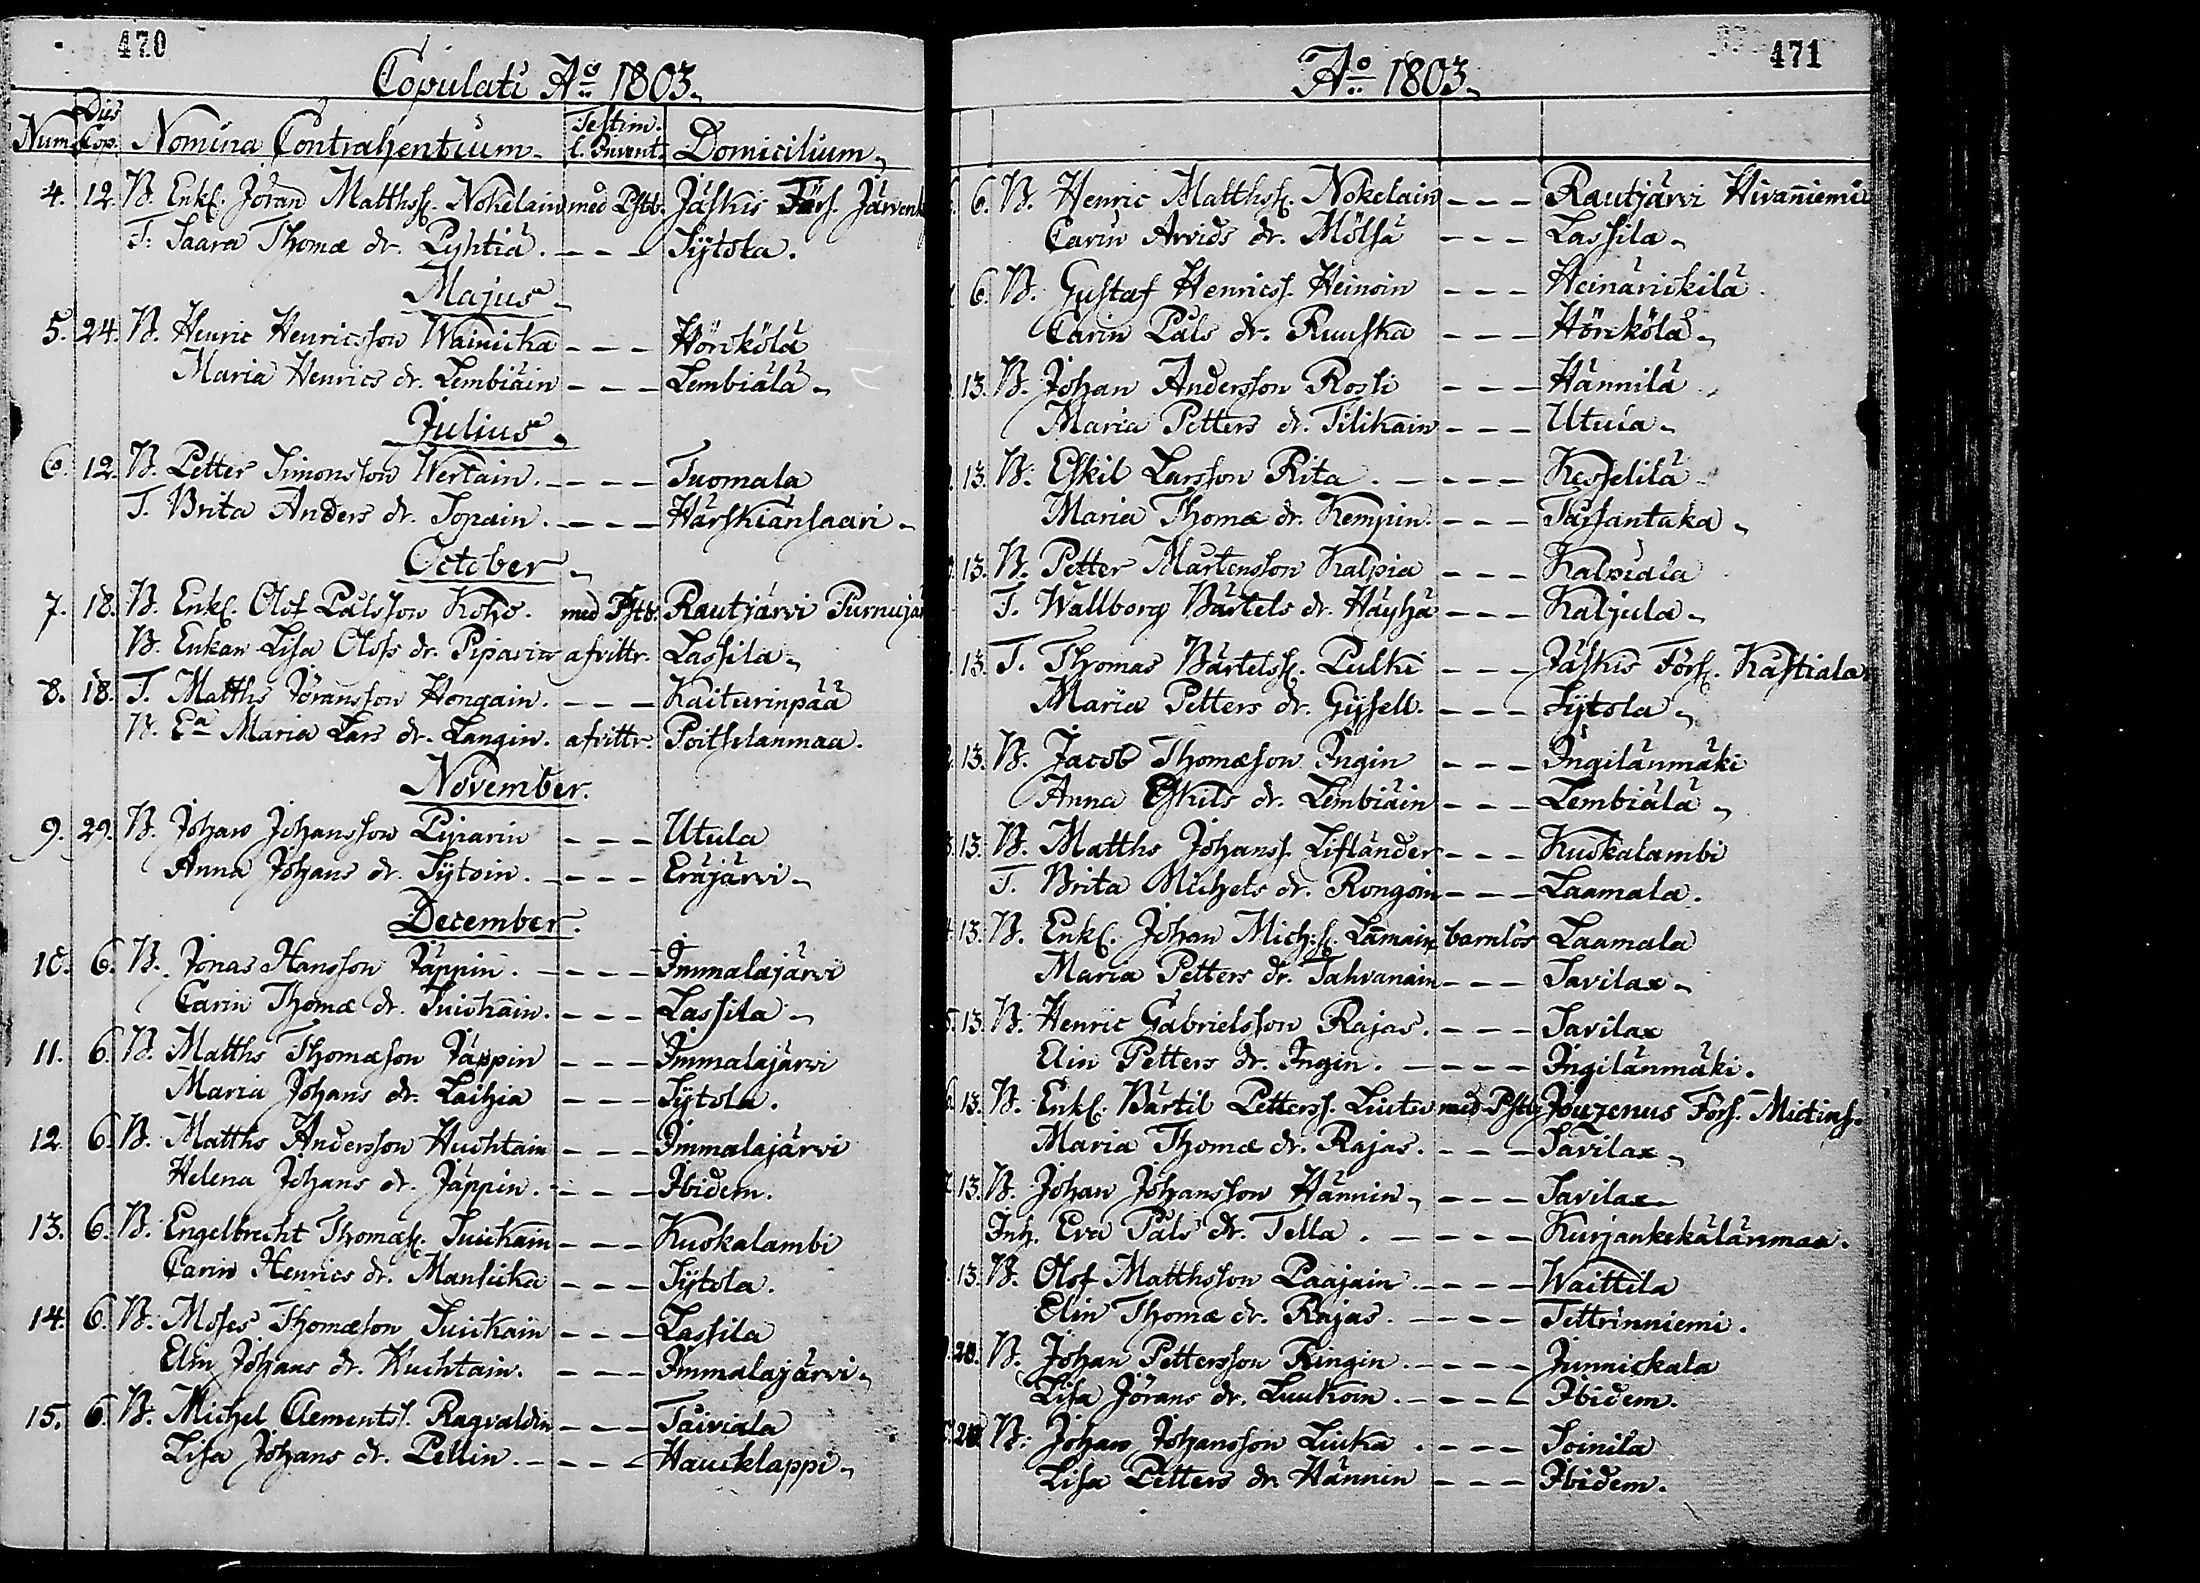 470
Copulati Aº 1803.
Num. Dies Cop. Nomina Contrahentium Testim. l. Invent. Domicilium
4. 12. B. Enkl. Jöran Matthss. Nokelain med Pstb. Jäskis Förs. Järvenk
T. Saara Thomæ dr. Pyhtiä. - - - Sÿtola.
Majus
5. 24. B. Henric Henricsson Wainicka - - - Hörkölä
Maria Henrics dr. Lembiäin - - - Lembiälä
Julius
6. 12. B. Petter Simonsson Wertain. - - - Tuomala
T. Brita Anders dr. Topain. - - - Härskiänsaari
October
7. 18. B. Enkl. Olof Pålsson Koho. med Pstb. Rautjärvi Purnujär
B. Enkan Lisa Olofs dr. Piparin afvittr. Lassila
8. 18. T. Matths Jöransson Hongain. - - - Kaiturinpää
B. Ea Maria Lars dr. Langin. afvittr. Poitsilanmaa.
November.
9. 29. B. Johan Johansson Piparin - - - Utula
Anna Johans dr. Sÿtoin. - - - Eräjärvi
December.
10. 6. B. Jonas Hansson Jäppin. - - - Immalajärvi
Carin Thomæ dr. Suickain. - - - Lassila
11. 6. B. Matths Thomæson Jäppin - - - Immalajärvi
Maria Johans dr. Laihia - - - Sÿtola.
12 6. B. Matths Andersson Huchtain - - - Immalajärvi
Helena Johans dr. Jäppin. - - - Ibidem.
13. 6. B. Engelbrecht Thomæs. Suickain - - - Kuokalambi
Carin Henrics dr. Mansicka - - - Sÿtola.
14. 6. B. Moses Thomæson Suickain - - - Lassila
Elin Johans dr. Huchtain. - - - Immalajärvi
15. 6. B. Michel Clements. Ragvaldin - - - Taiviala
Lisa Johans dr. Pellin. - - - Haucklappi
471
Aº 1803
6. B. Henric Matthss. Nokelain - - - Rautjärvi Hivaniemi
Carin Arvids dr. Mölsä - - - Lassila
6. B. Gustaf Henricss. Heinoin - - - Heinänickilä
Carin Påls dr. Ruuska - - - Hörkölä
13. B. Johan Andersson Rosti - - - Hännilä
Maria Petters dr. Tilikain - - - Utula
13. B. Eskil Larsson Rita. - - - Kesselilä
Maria Thomæ dr. Kempin. - - - Täysantaka
13. B. Petter Mårtensson Kalpia - - - Kalpiala
T. Wallborg Bärtels dr. Häyhä - - - Kaljula
13. T. Thomas Bärtelss. Pulki - - - Jäskis Förs. Kastiala
Maria Petters dr. Gijsell. - - - Sÿtola
13. B. Jacob Thomæson Ingin - - - Ingilänmäki
Anna Eskils dr. Lembiäin - - - Lembiälä
13. B. Matths Johanss. Lifländer - - - Kuokalambi
T. Brita Michels dr. Rongoin - - - Laamala.
13. B. Enkl. Johan Mich:s. Lamain barnlös Laamala
Maria Petters dr. Tahvanain - - - Savilax
13. B. Henric Gabrielsson Rajas. - - - Savilax
Elin Petters dr. Ingin. - - - Ingilänmäki.
13. B. Enkl. Bärtil Petterss. Liutu med Pstb. Jouzenus Förs. Mictins.
Maria Thomæ dr. Rajas. - - - Savilax
13. B. Johan Johansson Hännin - - - Savilax
Inh. Eva Påls dr. Tella. - - - Kurjankekälänmaa.
13. B. Olof Matthsson Paajain - - - Waittila
Elin Thomæ dr. Rajas. - - - Tettrinniemi.
20. B. Johan Pettersson Ringin. - - - Junnickala
Lisa Jörans dr. Luukoin. - - - Ibidem.
20 B. Johan Johansson Liuka. - - - Soinila
Lisa Petters dr. Hännin - - - Ibidem.